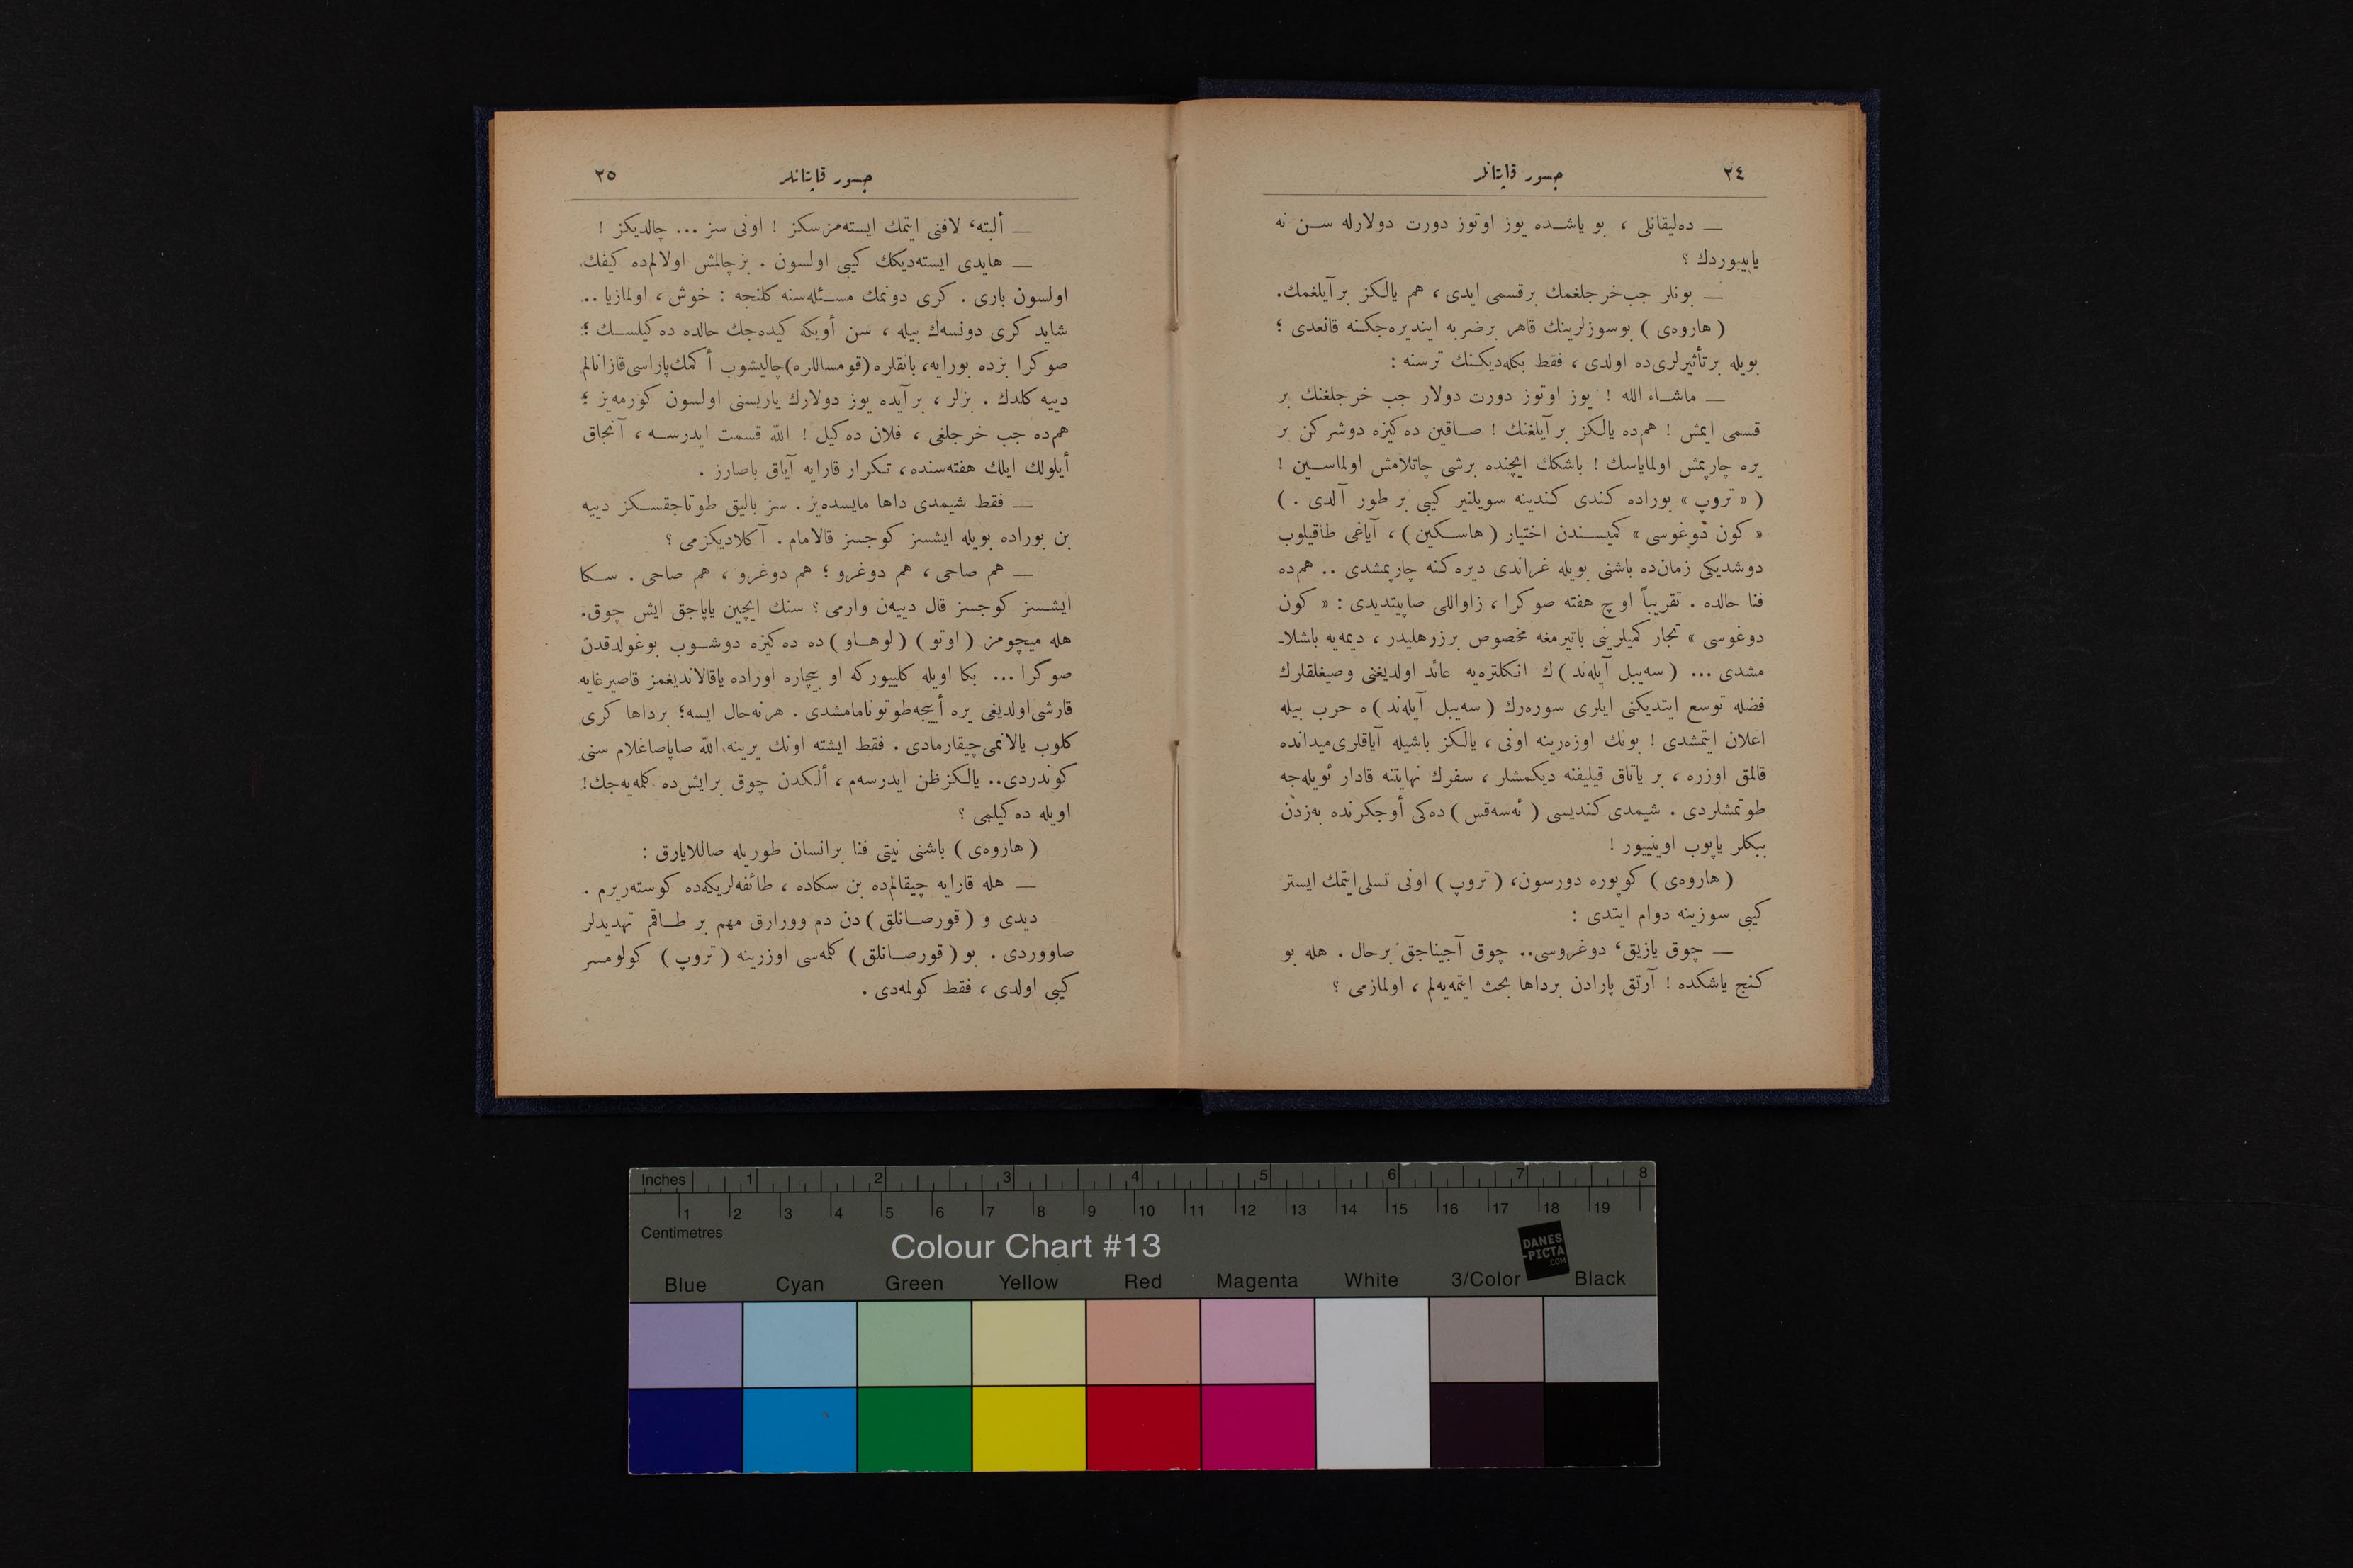 ٢٤
جسور قاپتانلر
— ده‌ليقانلی ، بو ياشـده يوز اوتوز دورت دولارله سـن نه
ياپييوردك ؟
— بونلر جب‌خرجلغمك برقسمی ايدی ، هم يالكز برآيلغمك.
( هاروه‌ی ) بوسوزلرينك قاهر برضربه اينديره‌جكـنه قانعدی ؛
بويله برتأثيرلری‌ده اولدی ، فقط بكله‌ديكـنك ترسنه :
— ماشـاء الله ! يوز اوتوز دورت دولار جب خرجلغنك بر
قسمی ايمش ! هم‌ده يالكز برآيلغنك ! صـاقين ده‌كيزه دوشركن بر
يره چارپمش اولماياسك ! باشكك ايچنده برشی چاتلامش اولماسـين !
( « تروپ » بوراده كندی كندينه سويلنير كيبی بر طور آلدی . )
« كون دوغوسی » كميسـندن اختيار ( هاسـكين ) ، آياغی طاقيلوب
دوشديكی زمان‌ده باشنی بويله غراندی ديره‌كنه چارپمشدی .. هم‌ده
فنا حالده . تقريباً اوچ هفته صوكرا ، زاواللی صاپيتديدی : « كون
دوغوسی » تجار كميلرينی باتيرمغه مخصوص برزرهليدر ، ديمه‌يه باشلا‌ـ
مشدی ... ( سه‌يبل آيله‌ند ) ك انكلتره‌يه عائد اولديغنی وصيغلقلرك
فضله توسع ايتديكنی ايلری سوره‌رك ( سه‌يبل آيله‌ند ) ه حرب بيله
اعلان ايتمشدی ! بونك اوزه‌رينه اونی ، يالكز باشيله آياقلری‌ميدانده
قالمق اوزره ، بر ياتاق قيليفنه ديكمشلر ، سفرك نهايتنه قادار ئويله‌جه
طوتمشلردی . شيمدی كنديسی ( ئه‌سه‌قس ) ده‌كی أوجكزنده به‌زدن
ببكلر ياپوب اوينييور !
( هاروه‌ی ) كوپوره دورسون، ( تروپ ) اونی تسلی‌ايتمك ايستر
كيبی سوزينه دوام ايتدی :
— چوق يازيق، دوغروسی.. چوق آجيناجق برحال . هله بو
كنج ياشكده ! آرتق پارادن برداها بحث ايتمه‌يه‌لم ، اولمازمی ؟
جسور قاپتانلر
٢٥
— ألبته، لافنی ايتمك ايسته‌مزسكز ! اونی سز ... چالديكز !
— هايدی ايسته‌ديكك كيبی اولسون . بزچالمش اولالم‌ده كيفك
اولسون باری . كری دونمك مسـئله‌سنه كلنجه : خوش ، اولمازيا ..
شايد كری دونسه‌ك بيله ، سن أويكه كيده‌جك حالده ده‌كيلسـك ؛
صوكرا بزده بورايه، بانقلره (قومساللره)چاليشوب أكمك‌پاراسی‌قازانالم
دييه كلدك . بزلر ، برآيده يوز دولارك ياريسنی اولسون كورمه‌يز ؛
هم‌ده جب خرجلغی ، فلان ده‌كيل ! الله قسمت ايدرسـه ، آنجاق
أيلولك ايلك هفته‌سنده ، تكرار قارايه آياق باصارز .
— فقط شيمدی داها مايسده‌يز . سز باليق طوتاجقسـكز دييه
بن بوراده بويله ايشسز كوجسز قالامام . آكلاديكزمی ؟
— هم صاحی ، هم دوغرو ؛ هم دوغرو ، هم صاحی . سـكا
ايشـسز كوجسز قال دييه‌ن وارمی ؟ سنك ايچين ياپاجق ايش چوق.
هله ميچومز ( اوتو ) ( لوهـاو ) ده ده‌كيزه دوشـوب بوغولدقدن
صوكرا ... بكا اويله كلييوركه او بيچاره اوراده ياقالانديغمز قاصيرغايه
قارشی‌اولديغی يره أييجه‌طوتونامامشدی . هرنه‌حال ايسه؛ برداها كری
كلوب يالانمی‌چيقارمادی . فقط ايشته اونك يرينه، الله صاپاصاغلام سنی
كوندردی.. يالكزظن ايدرسه‌م ، ألكدن چوق برايش‌ده كلمه‌يه‌جك!
اويله ده‌كيلمی ؟
( هاروه‌ی ) باشنی نيتی فنا برانسان طوريله صاللايارق :
— هله قارايه چيقالم‌ده بن سكاده ، طائفه‌لريكه‌ده كوستەريرم .
ديدی و ( قورصـانلق ) دن دم وورارق مهم بر طـاقم تهديدلر
صاووردی . بو ( قورصـانلق ) كلمه‌سی اوزرينه ( تروپ ) كولومسر
كيبی اولدی ، فقط كولمه‌دی .
Inches 1 2 3 4 5 6 7 8
1 2 3 4 5 6 7 8 9 10 11 12 13 14 15 16 17 18 19
Centimetres
Colour Chart #13
DANES
-PICTA
.COM
Blue Cyan Green Yellow Red Magenta White 3/Color Black